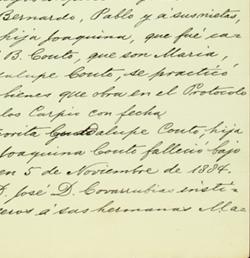 Bernardo, Pablo y á sus nietas,
hija Joaquina, que fué ca-
B. Couto, que son Maria,
alupe Couto, se practicó
bienes que obra en el Protocolo
los Carpio con fecha
onita Guadalupe Couto, hija
Joaquina Couto falleció bajo
en 5 de Noviembre de 1884.
José D. Covarrubias insti-
eros á sus hermanas Ma-